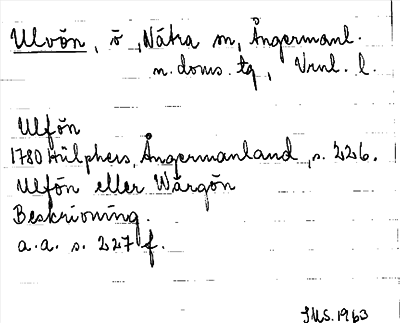 Ulvön, ö, Nätra sn, Ångermanl.
n. doms. tg, Vrnl. l.
Ulfön
1780 Hülphers, Ångermanland, s. 226.
Ulfön eller Wårgön
Beskrivning.
a.a. s. 227 f.
IMS. 1963